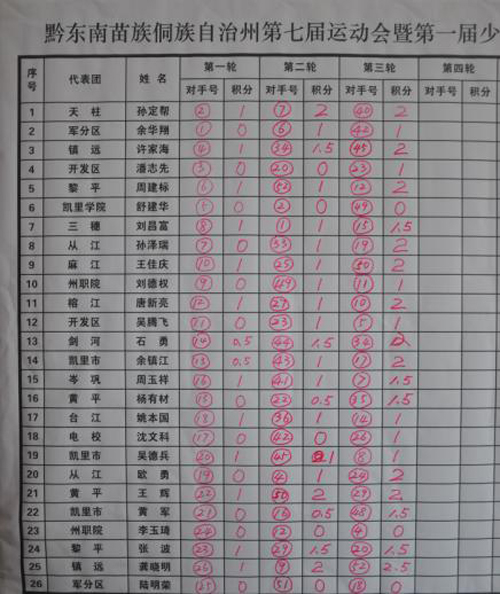 黔东南苗族侗族自治州第七届运动会暨第一届少
序号 代表团 姓名 第一轮 第二轮 第三轮 第四轮
对手号 积分 对手号 积分 对手号 积分 对手号 积分
1 天柱 孙定帮 2 1 7 2 40 2
2 军分区 余华翔 1 0 6 1 42 1
3 镇远 许家海 4 1 34 1.5 45 2
4 开发区 潘志先 3 0 20 0 23 1
5 黎平 周建标 6 1 52 1 12 2
6 凯里学院 舒建华 5 0 2 0 49 0
7 三穗 刘昌富 8 1 1 1 15 1.5
8 从江 孙泽瑞 7 0 33 1 19 2
9 麻江 王佳庆 10 1 25 1 50 2
10 州职院 刘德权 9 0 49 1 11 1
11 榕江 唐新亮 12 1 27 1 10 2
12 开发区 吴腾飞 11 0 23 1 5 1
13 剑河 石勇 14 0.5 44 1.5 34 2
14 凯里市 余镇江 13 0.5 43 1 17 2
15 岑巩 周玉祥 16 1 41 1 7 1.5
16 黄平 杨有材 15 0 22 0.5 35 1.5
17 台江 姚本国 18 1 36 1 14 1
18 电校 沈文科 17 0 42 0 26 1
19 凯里市 吴德兵 20 1 45 1 8 1
20 从江 欧勇 19 0 4 1 24 2
21 黄平 王辉 22 1 50 2 29 2
22 凯里市 黄军 21 0 16 0.5 48 1.5
23 州职院 李玉琦 24 0 12 0 4 0
24 黎平 张波 23 1 29 1.5 20 1.5
25 镇远 龚晓明 26 1 9 2 52 2.5
26 军分区 陆明荣 25 0 51 0 18 0